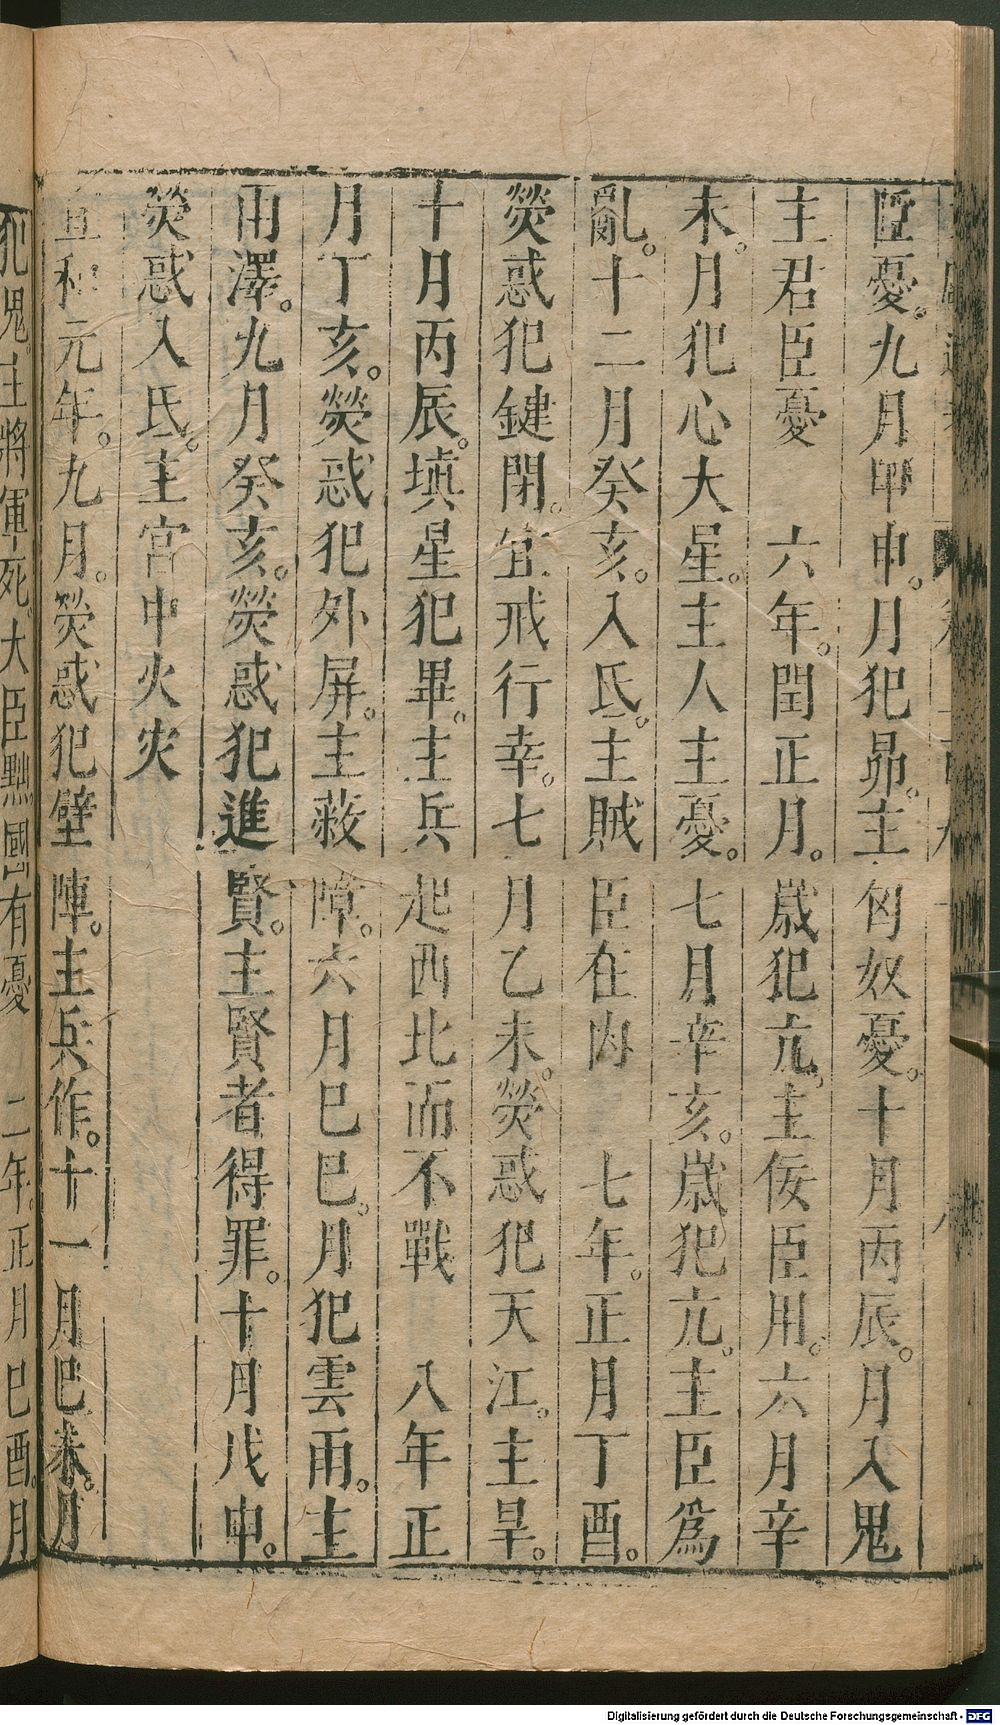 臣憂。九月甲申。月犯昴。主匈奴憂。十月丙辰。月入鬼
主君臣憂　六年。閏正月。歲犯亢。主佞臣用。六月辛
未。月犯心大星。主人主憂。七月辛亥。歲犯亢。主臣爲
亂。十二月癸亥。入氐。主賊臣在內　七年。正月丁酉。
熒惑犯鍵閉。宜戒行幸。七月乙未。熒惑犯天江。主旱。
十月丙辰。塡星犯畢。主兵起西北而不戰　八年正
月丁亥。熒惑犯外屏。主蔽障。六月巳巳。月犯雲雨。主
雨澤。九月癸亥。熒惑犯進賢。主賢者得罪。十月戊申。
熒惑入氐。主宮中火灾
宣和元年。九月。熒惑犯壁陣。主兵作。十一月巳未。月
犯鬼。主將軍死。大臣黜國有憂　二年。正月巳酉。月
Digitalisierung gefördert durch die Deutsche Forschungsgemeinschaft - DFG